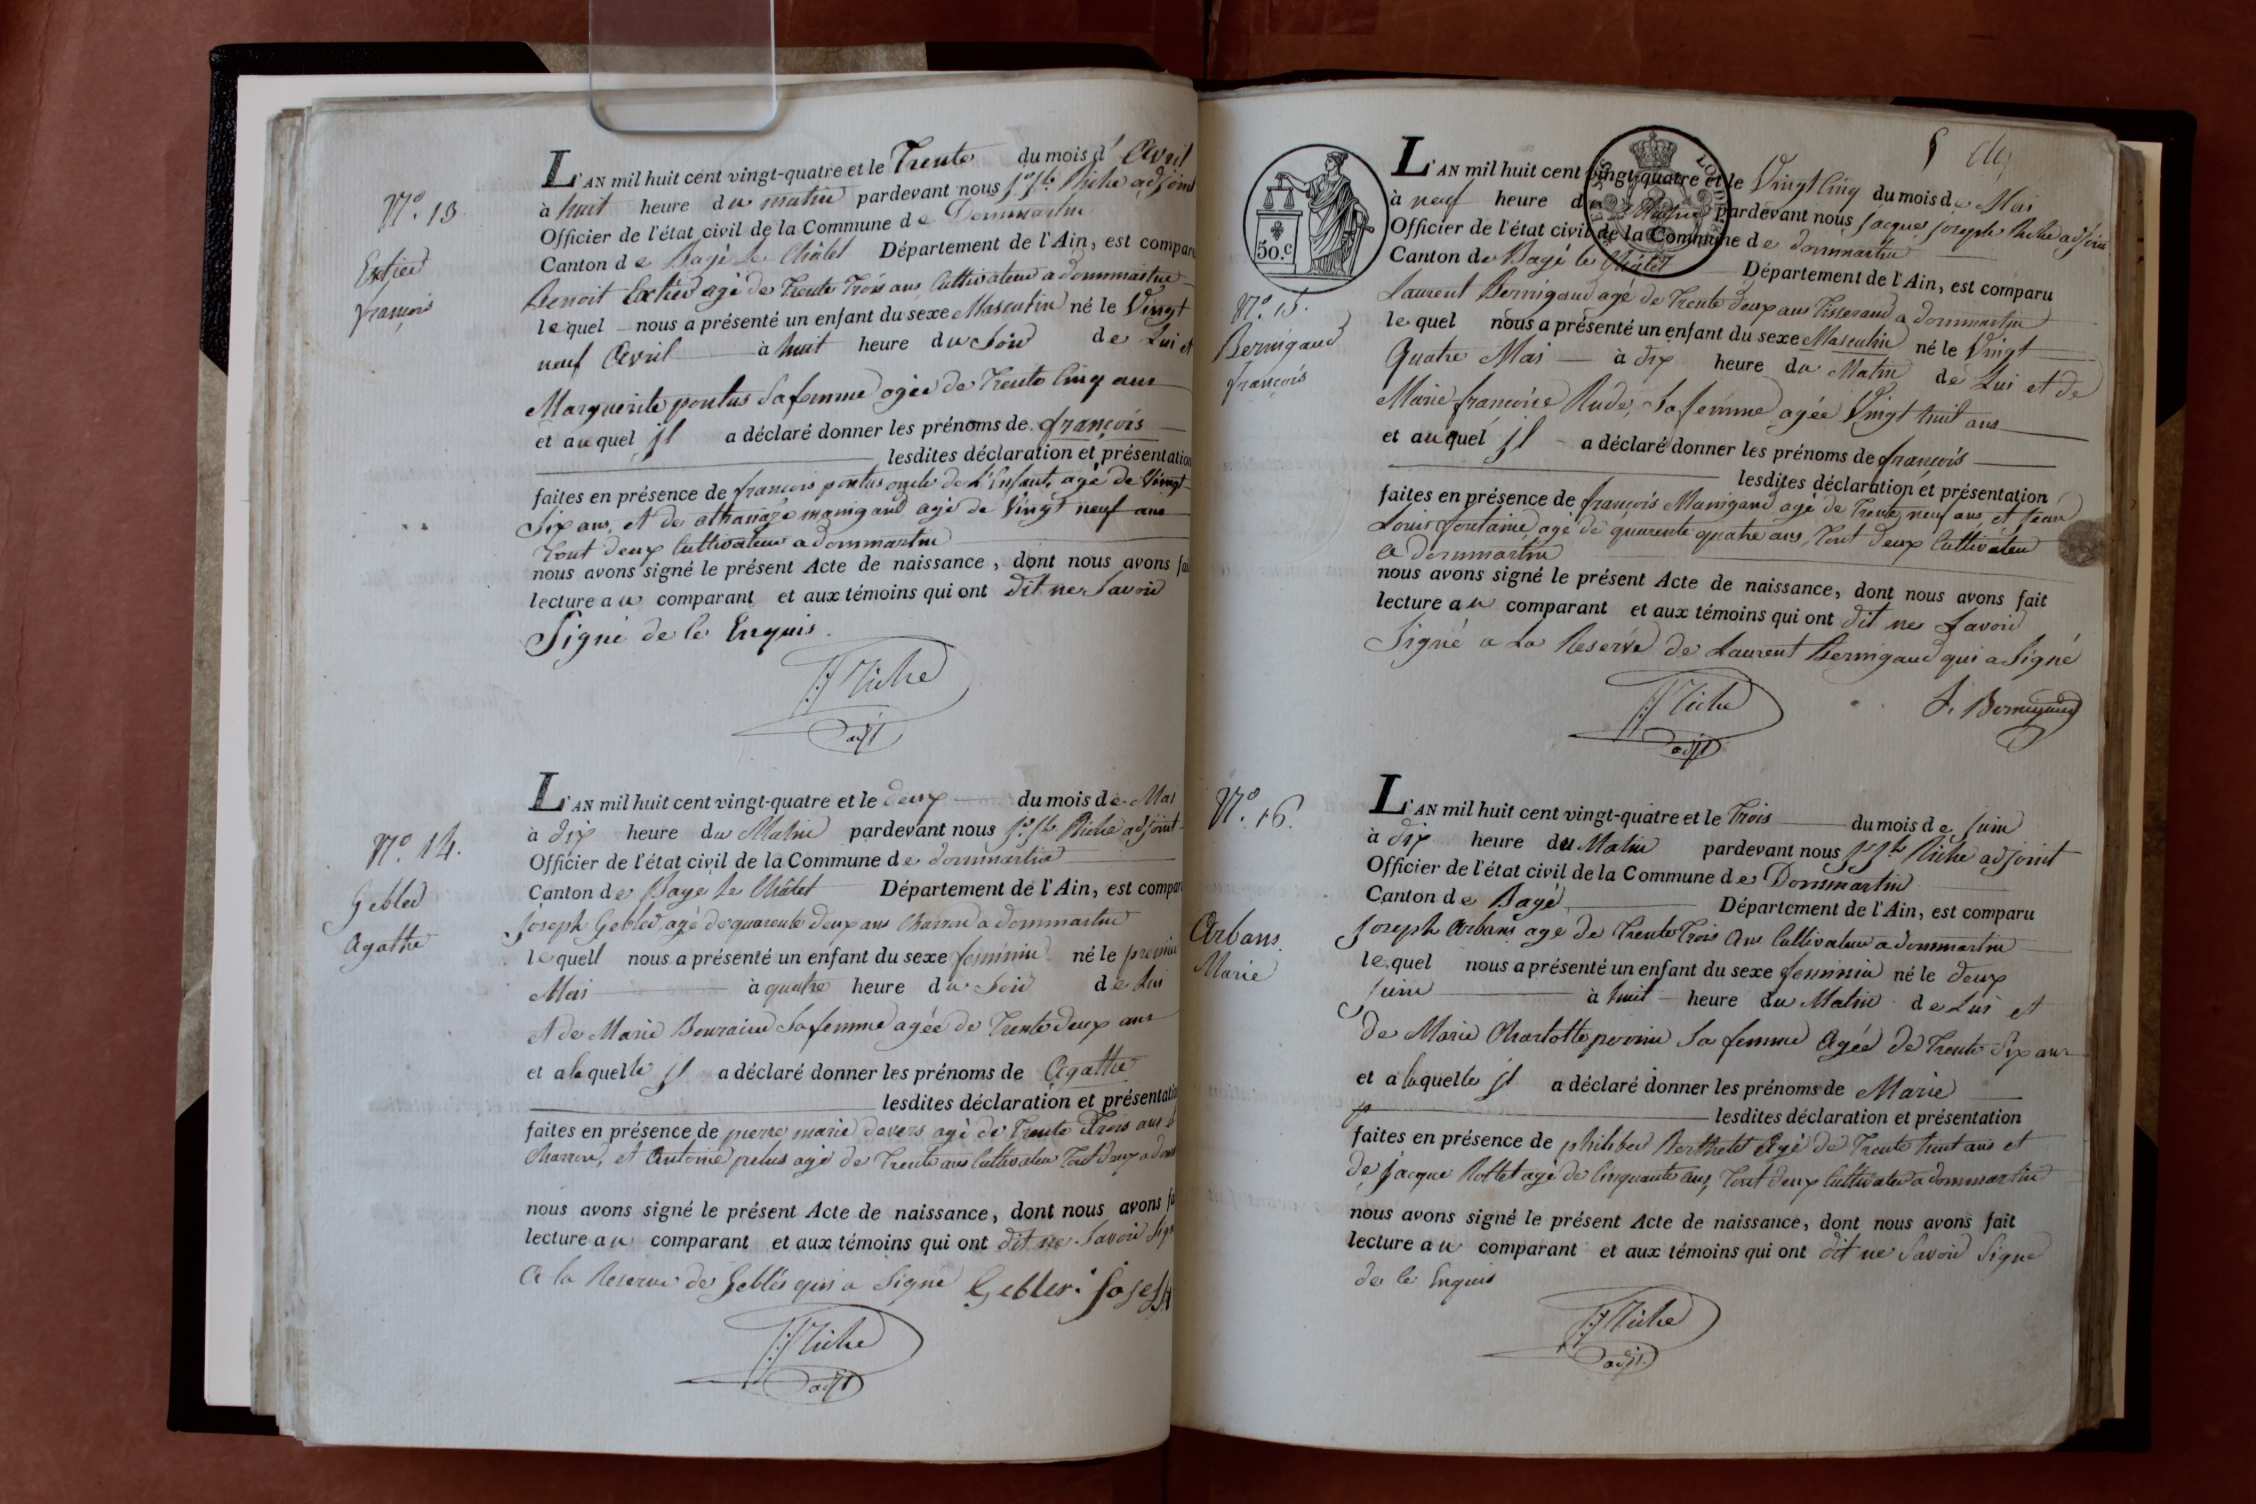 N.o 13
Extier
françois
L'AN mil huit cent vingt-quatre et le Trente du mois d' Avril
à huit heure du matin pardevant nous Jq. Jph. Riche adjoint
Officier de l'état civil de la Commune de Dommartin
Canton de Bagé le Châtel Département de l'Ain, est comparu
Benoit Extier agé de Trente Trois ans Cultivateur a dommartin
lequel nous a présenté un enfant du sexe Masculin né le Vingt
neuf Avril à huit heure du Soir de Lui et
Marguerite pontus Sa femme agée de Trente Cinq ans
et auquel jl a déclaré donner les prénoms de françois
lesdites déclaration et présentation
faites en présence de françois pontus oncle de L'Enfant, agé de Vingt
Six ans, et de athanaze manigand agé de Vingt neuf ans
Tout deux Cultivateur a dommartin
nous avons signé le présent Acte de naissance, dont nous avons fai
lecture au comparant et aux témoins qui ont dit ne Savoir
Signé de le Enquis
Riche
adjt
N.o 14.
Gebler
Agathe
L'AN mil huit cent vingt-quatre et le deux du mois de Mai
à dix heure du Matin pardevant nous Jq. Jph Riche adjoint
Officier de l'état civil de la Commune de dommartin
Canton de Bagé le Châtel Département de l'Ain, est compar
Joseph Gebler, agé de quarente deux ans Charron a dommartin
lequell nous a présenté un enfant du sexe feminin né le premier
Mai à quatre heure du Soir de Lui
et de Marie Sa femme agée de Trente deux ans
et a laquelle jl a déclaré donner les prénoms de Agathe
lesdites déclaration et présentation
faites en présence de pierre marie devers agé de Trente Trois ans et
Charron, et Antoine pelus agé de Trente ans Cultivateur Tout deux a dom
nous avons signé le présent Acte de naissance, dont nous avons fa
lecture au comparant et aux témoins qui ont dit ne Savoir Sign
A la Reserve de Geblér qui a Signé Gebler Joseph
Riche
adjt
50.c
N.o 15.
Bernigaud
françois
L'AN mil huit cent vingt-quatre et le Vingt Cinq du mois de Mai
à neuf heure du Matin pardevant nous Jacque Joseph Riche adjoin
Officier de l'état civil de la Commune de dommartin
Canton de Bagé le Châtel Département de l'Ain, est comparu
Laurent Bernigaud agé de Trente deux ans Tisserand a dommartin
lequel nous a présenté un enfant du sexe Masculin né le Vingt
Quatre Mai à dix heure du Matin de Lui et de
Marie francoise Rude, Sa femme agée Vingt huit ans
et auquel jl a déclaré donner les prénoms de françois
lesdites déclaration et présentation
faites en présence de françois Manigand agé de Trente neuf ans et Jean
Louis fontaine, agé de quarente quatre ans, Tout deux Cultivateu
a dommartin
nous avons signé le présent Acte de naissance, dont nous avons fait
lecture au comparant et aux témoins qui ont dit ne Savoir
Signé a La Reserve de Laurent Bernigaud qui a Signé
Riche
adjt
L. Bernigaud
N.o 16.
Arbans
Marie
L'AN mil huit cent vingt-quatre et le Trois du mois de Juin
à dix heure du Matin pardevant nous Jq Jph Riche adjoint
Officier de l'état civil de la Commune de Dommartin
Canton de Bagé Département de l'Ain, est comparu
Joseph Arbans agé de Trente Trois Ans Cultivateur a dommartin
lequel nous a présenté un enfant du sexe feminin né le deux
Juin à huit heure du Matin de Lui et
de Marie Charlotte perrin Sa femme Agée de Trente Six ans
et a laquelle jl a déclaré donner les prénoms de Marie
lesdites déclaration et présentation
faites en présence de philiber Berthelet Agé de Trente huit ans et
de Jacque Rottet agé de Cinquante ans, Tout deux Cultivateur a dommartin
nous avons signé le présent Acte de naissance, dont nous avons fait
lecture au comparant et aux témoins qui ont dit ne Savoir Signé
de le Enquis
Riche
adjt.